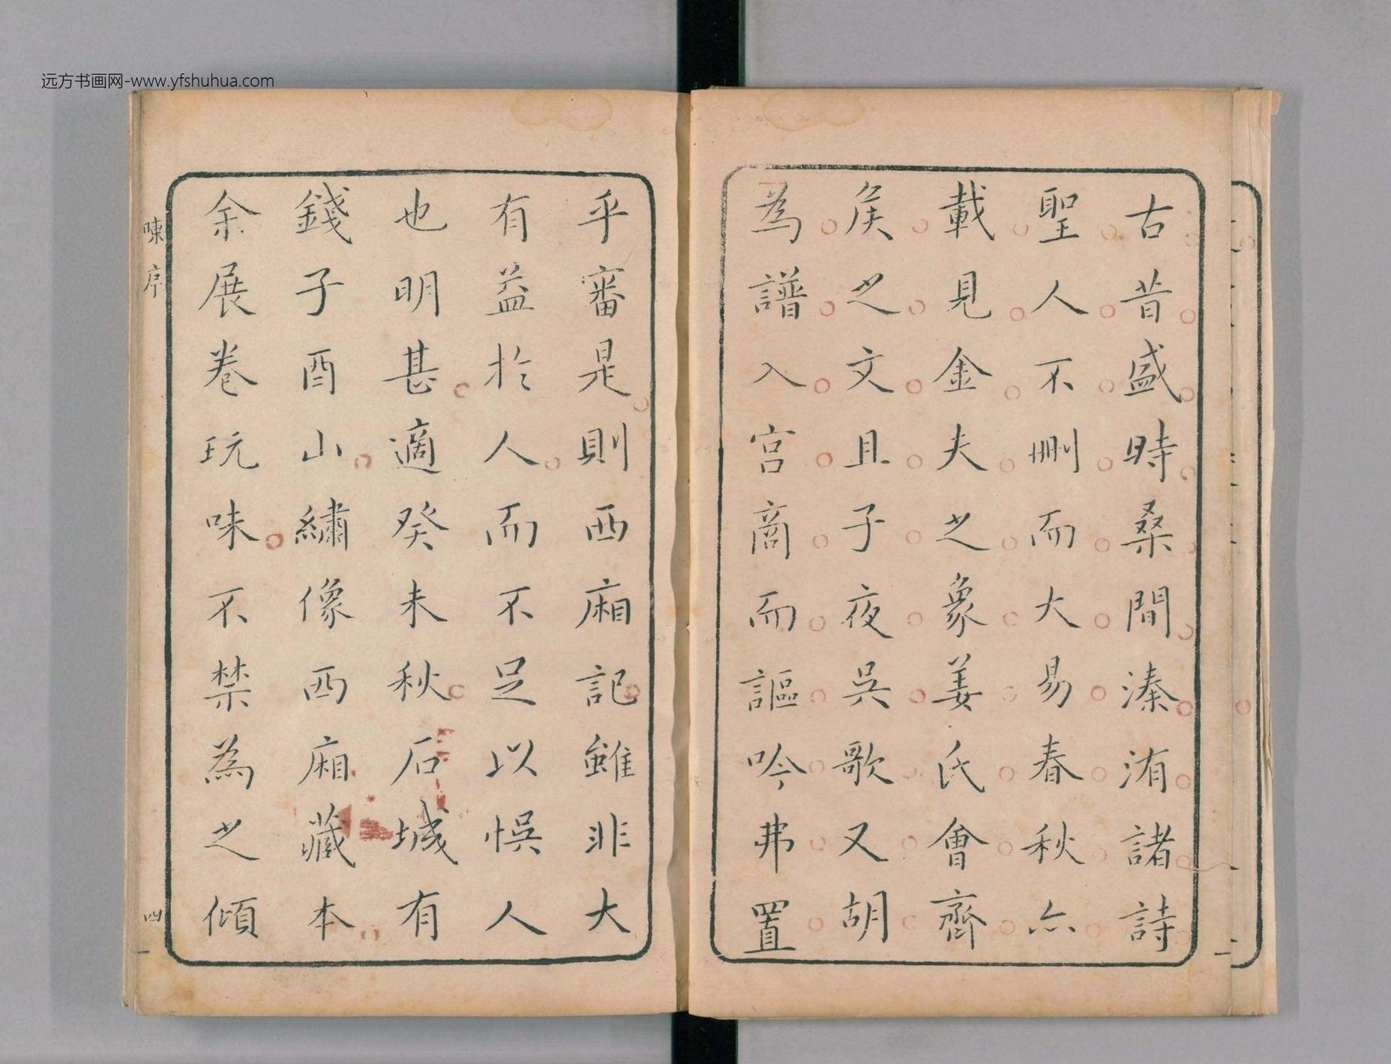 远方书画网-www.yfshuhua.com
古昔盛時桑間溱洧諸詩
聖人不刪而大易春秋亦
載見金夫之象姜氏會齊
矦之文且子夜吳歌又胡
為譜入宮商而謳吟弗置
乎審是則西廂記雖非大
有益於人而不足以悞人
也明甚適癸未秋石城有
錢子酉山繡像西廂藏本
余展卷玩味不禁為之傾
陳序
四